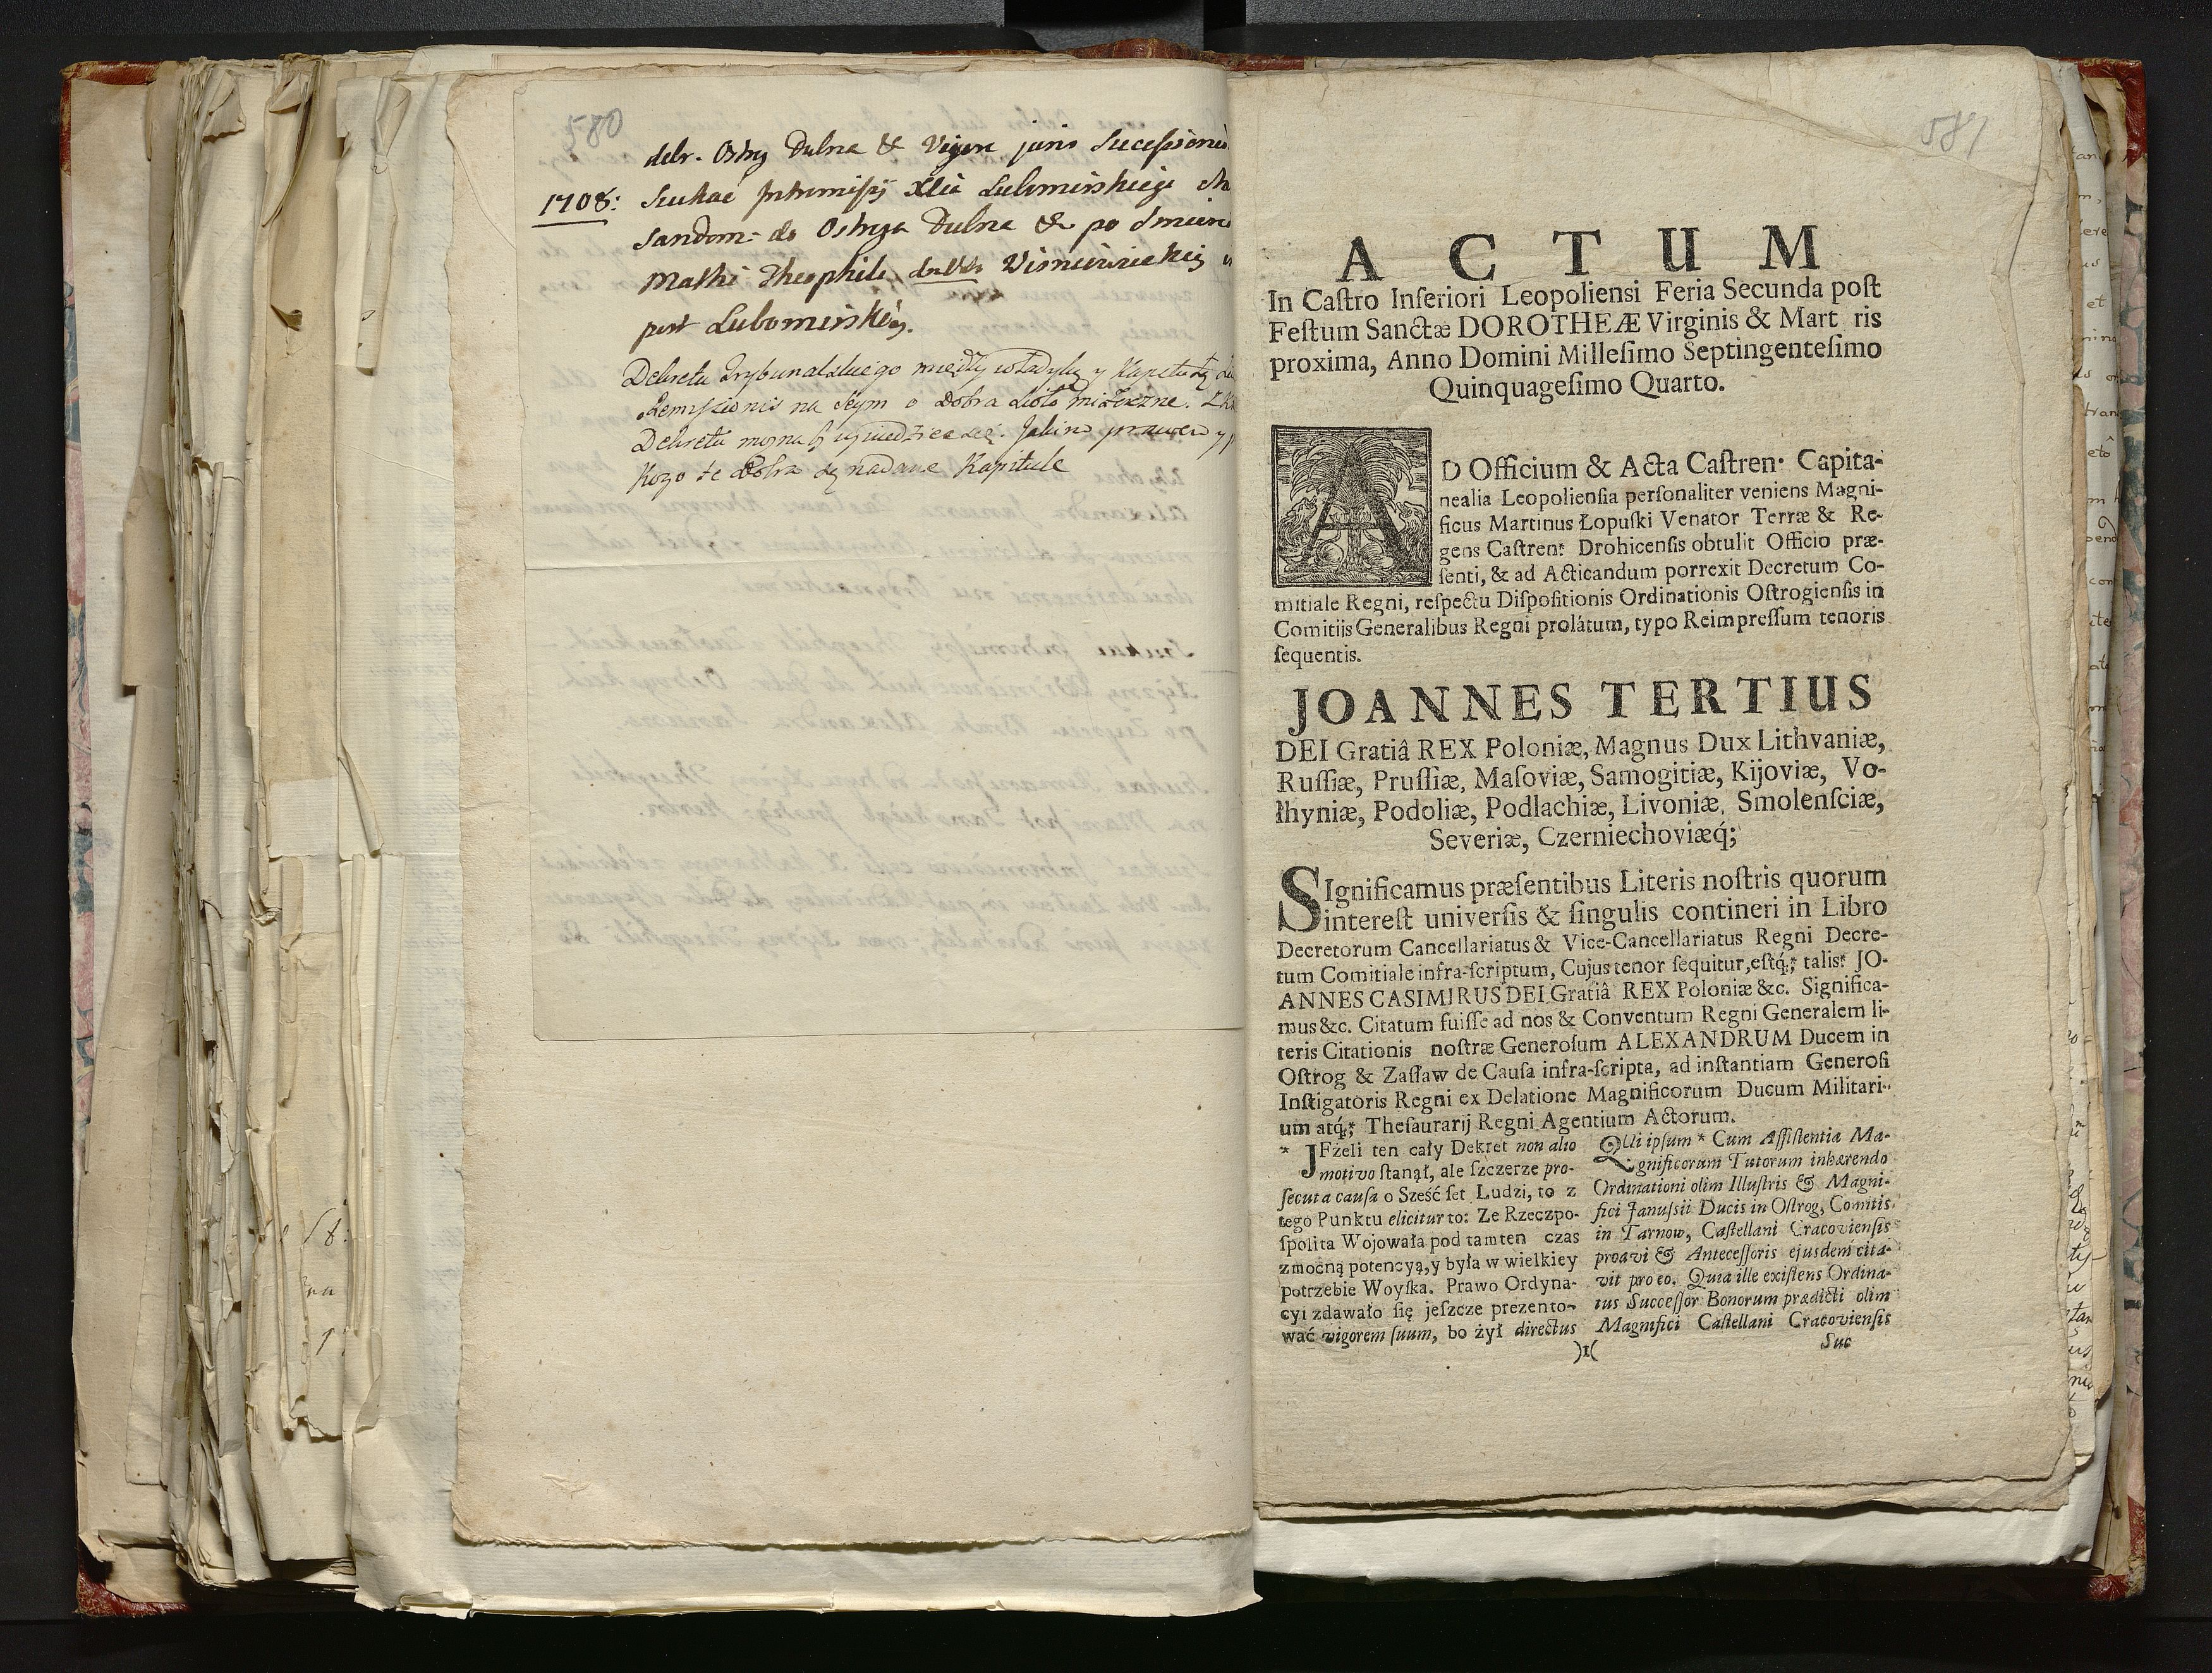 580
dobr. Ostrog Dubna & Vigore juris Sucessionis
1708: Szukac Intromissÿ Xcia Lubomirskiego
Sandom: do Ostroga Dubna & po Smierci
Matki Theophili de Vdo Wisniowieckiey
post Lubomirskiey.
Dekretu Trybunalskiego między władyką y Kapitułą
Remissionis na Seym o Dobra
Dekretu można się
Kogo te Dobra są nadane Kapitule
581
ACTUM
In Caſtro Inferiori Leopolienſi Feria Secunda poſt
Feſtum Sanctæ DOROTHEÆ Virginis & Mart ris
proxima, Anno Domini Milleſimo Septingenteſimo
Quinquageſimo Quarto.
AD Officium & Acta Caſtren: Capita-
nealia Leopolienſia perſonaliter veniens Magni-
ficus Martinus Łopuſki Venator Terræ & Re-
gens Caſtren: Drohicenſis obtulit Officio præ-
ſenti, & ad Acticandum porrexit Decretum Co-
mitiale Regni, reſpectu Diſpoſitionis Ordinationis Oſtrogienſis in
Comitiis Generalibus Regni prolátum, typo Reimpreſſum tenoris
ſequentis.
JOANNES TERTIUS
DEI Gratiâ REX Poloniæ, Magnus Dux Lithvaniæ,
Ruſſiæ, Pruſſiæ, Maſoviæ, Samogitiæ, Kijoviæ, Vo-
lhyniæ, Podoliæ, Podlachiæ, Livoniæ, Smolenſciæ,
Severiæ, Czerniechoviæq́;
SIgnificamus præſentibus Literis noſtris quorum
intereſt univerſis & ſingulis contineri in Libro
Decretorum Cancellariatus & Vice-Cancellariatus Regni Decre-
tum Comitiale infra-ſcriptum, Cujus tenor ſequitur, eſtq́; talis: JO-
ANNES CASIMIRUS DEI Gratiâ REX Poloniæ &c. Significa-
mus &c. Citatum fuiſſe ad nos & Conventum Regni Generalem li-
teris Citationis noſtræ Generoſum ALEXANDRUM Ducem in
Oſtrog & Zaſław de Cauſa infra-ſcripta, ad inſtantiam Generoſi
Inſtigatoris Regni ex Delatione Magnificorum Ducum Militari-
um atq́; Theſaurarij Regni Agentium Actorum.
* JEżeli ten cały Dekret non alio
motivo ſtanął, ale ſzczerze pro-
ſecuta cauſa o Sześć ſet Ludzi, to z
tego Punktu elicitur to: Ze Rzeczpo-
ſpolita Wojowała pod tamten czas
z mocną potencyą, y była w wielkiey
potrzebie Woyſka. Prawo Ordyna-
cyi zdawało się jeſzcze prezento-
wać vigorem ſuum, bo żył directus
QUi ipſum * Cum Aſſiſtentia Ma-
gnificorum Tutorum inhærendo
Ordinationi olim Illuſtris & Magni-
fici Januſsii Ducis in Oſtrog, Comitis
in Tarnow, Caſtellani Cracovienſis
proavi & Anteceſſoris ejusdem cita-
vit pro eo. Quia ille exiſtens Ordina-
tus Succeſſor Bonorum prædicti olim
Magnifici Caſtellani Cracovienſis
)1(
Suc